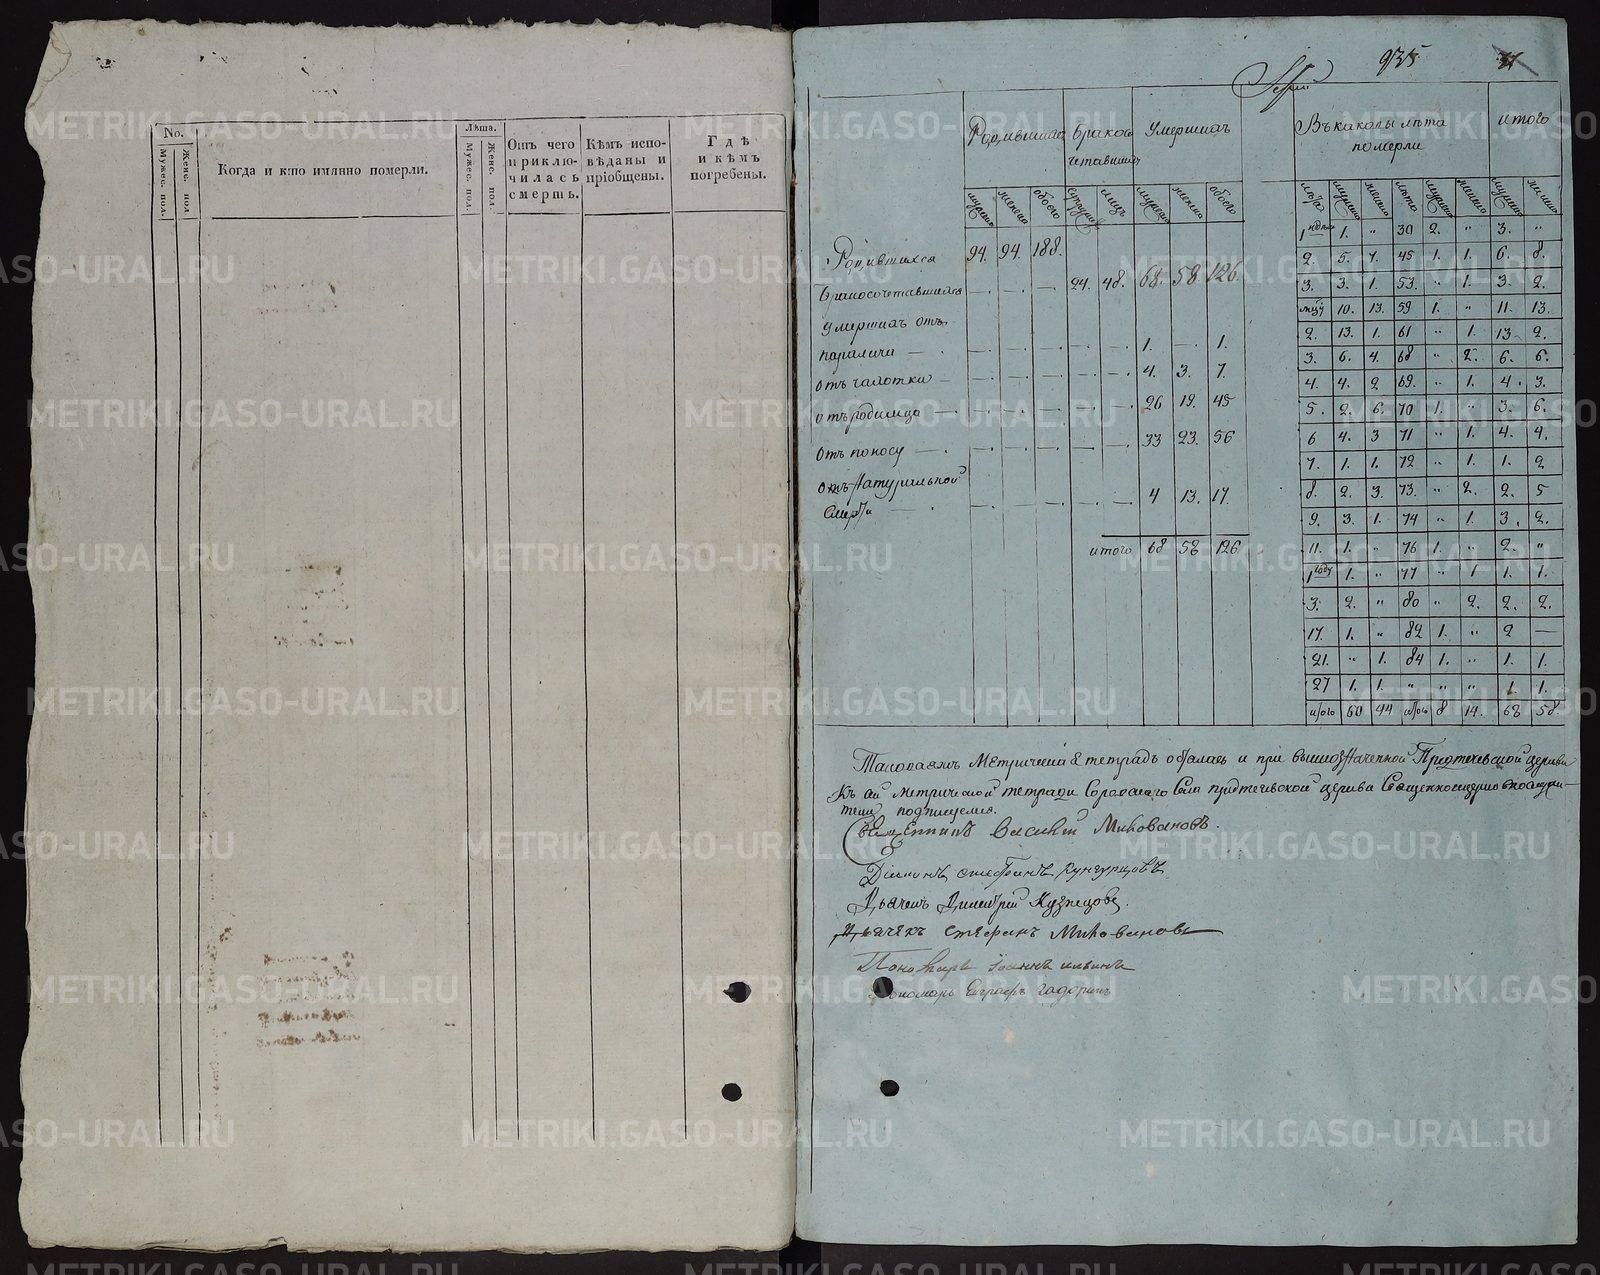 No.
Мужес. пол.
Женс. пол
Когда и кто имянно померли.
Лѣта.
Мужес. пол.
Женс. пол.
Отъ чего
приклю-
чилась
смерть.
Кѣмъ испо-
вѣданы и
пріобщены.
Гдѣ
и кѣмъ
погребены.
935
Умершихъ
Въ какалы лѣта
померли
итого
лѣта
обоего
лицъ
обоего
1 1. " 30 2. " 3. "
2. 5. 7. 45 1. 1. 6. 8.
3. 3. 1. 53. " 1. 3. 2.
10. 13. 59 1. " 11. 13.
2. 13. 1. 61 " 1. 13. 2.
3. 6. 4. 68 " 2. 6. 6.
4. 4. 2. 69. " 1. 4. 3.
5. 2. 6. 70 1. " 3. 6.
6 4. 3 71 " 1. 4. 4.
7. 1. 1. 72 " 1. 1. 2
8. 2. 3. 73. " 2. 2. 5
9. 3. 1. 74 " 1. 3. 2.
11. 1. " 76 1. " 2. "
1 году 1. " 77 " 1 1. 1.
3. 2. " 80 " 2. 2. 2.
17. 1. " 82 1. " 2 —
21. " 1. 84 1. " 1. 1.
27 1. 1. " " " 1. 1.
итого 60 44 итого 8 14. 68 58.
Родившихся 94. 94. 188.
Бракосочетавшихся — — — 24. 48. 68. 58. 126.
умершихъ отъ
паралича — — — — — 1. — 1.
отъ чахотки — — — — — 4. 3. 7.
отъ родимца — — — — — 26 19. 45
отъ поносу — — — — — 33 23. 56
отъ Натуральной
Смерти — — — 4 13. 17.
итого 68 58 126
Метрическая тетрадь и при Предтечевской церкви
Къ сей метрической тетради села Предтечевской церкви
подписуемся.
Священникъ Василій Миловановъ.
Діаконъ Стефанъ Кунгурцовъ
Дьячекъ Димитрій Кузнецовъ.
Дьячекъ Стефанъ Миловановъ
Пономарь Іоаннъ Ильинъ
Пономарь Евграфъ
METRIKI.GASO-URAL.RU